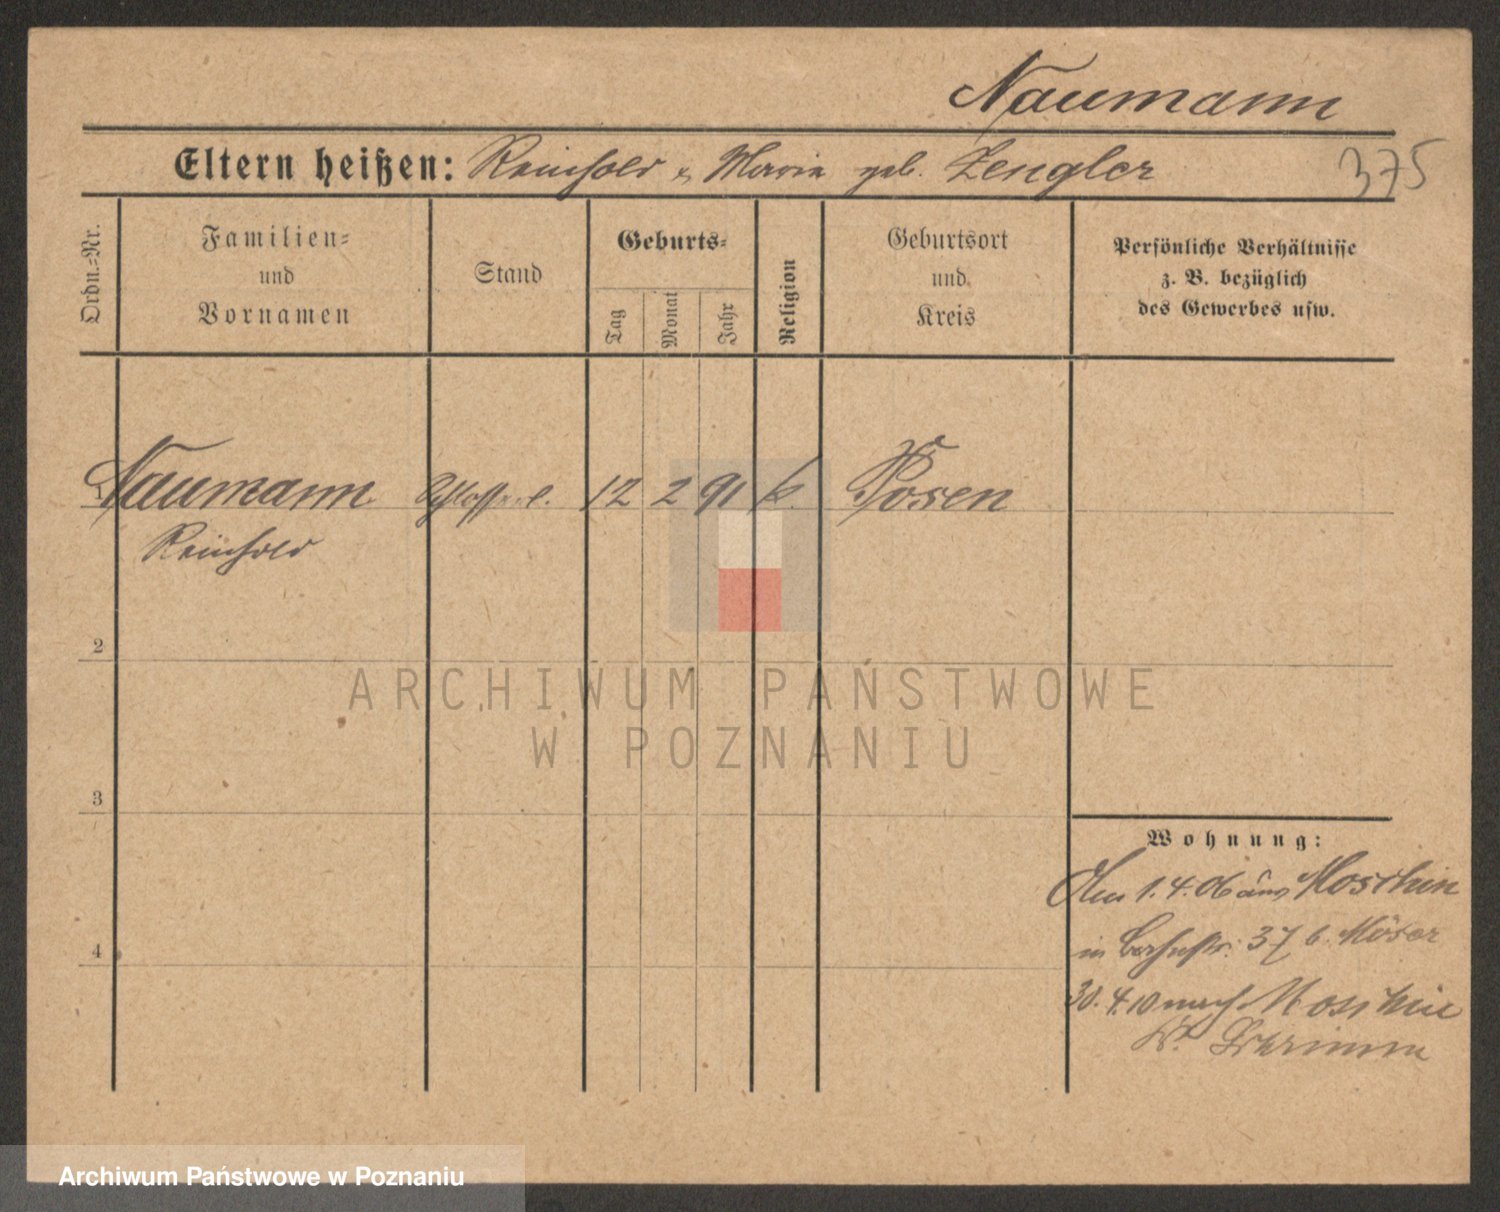 Naumann
Eltern heißen: Reinhold & Maria geb. Zengler
375
Ordn.-Nr.
Familien-
und
Vornamen
Stand
Geburts-
Tag
Monat
Jahr
Religion
Geburtsort
und
Kreis
Persönliche Verhältnisse
z. B. bezüglich
des Gewerbes usw.
1 Naumann Schlosserl. 12 2 91 k. Posen
Reinhold
2
3
4
Wohnung:
Am 1.4.06 aus Moschin
in 37 b. Möser
30.4.10 nach Moschin
Kr. Schrimm
ARCHIWUM PAŃSTWOWE
W POZNANIU
Archiwum Państwowe w Poznaniu